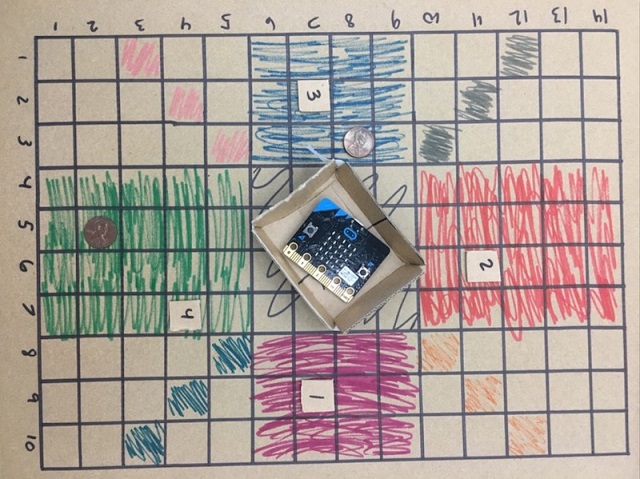 1 2 3 4 5 6 7 8 9 10 11 12 13 14
1
2
3
4
5
6
7
8
9
10
3
2
4
1